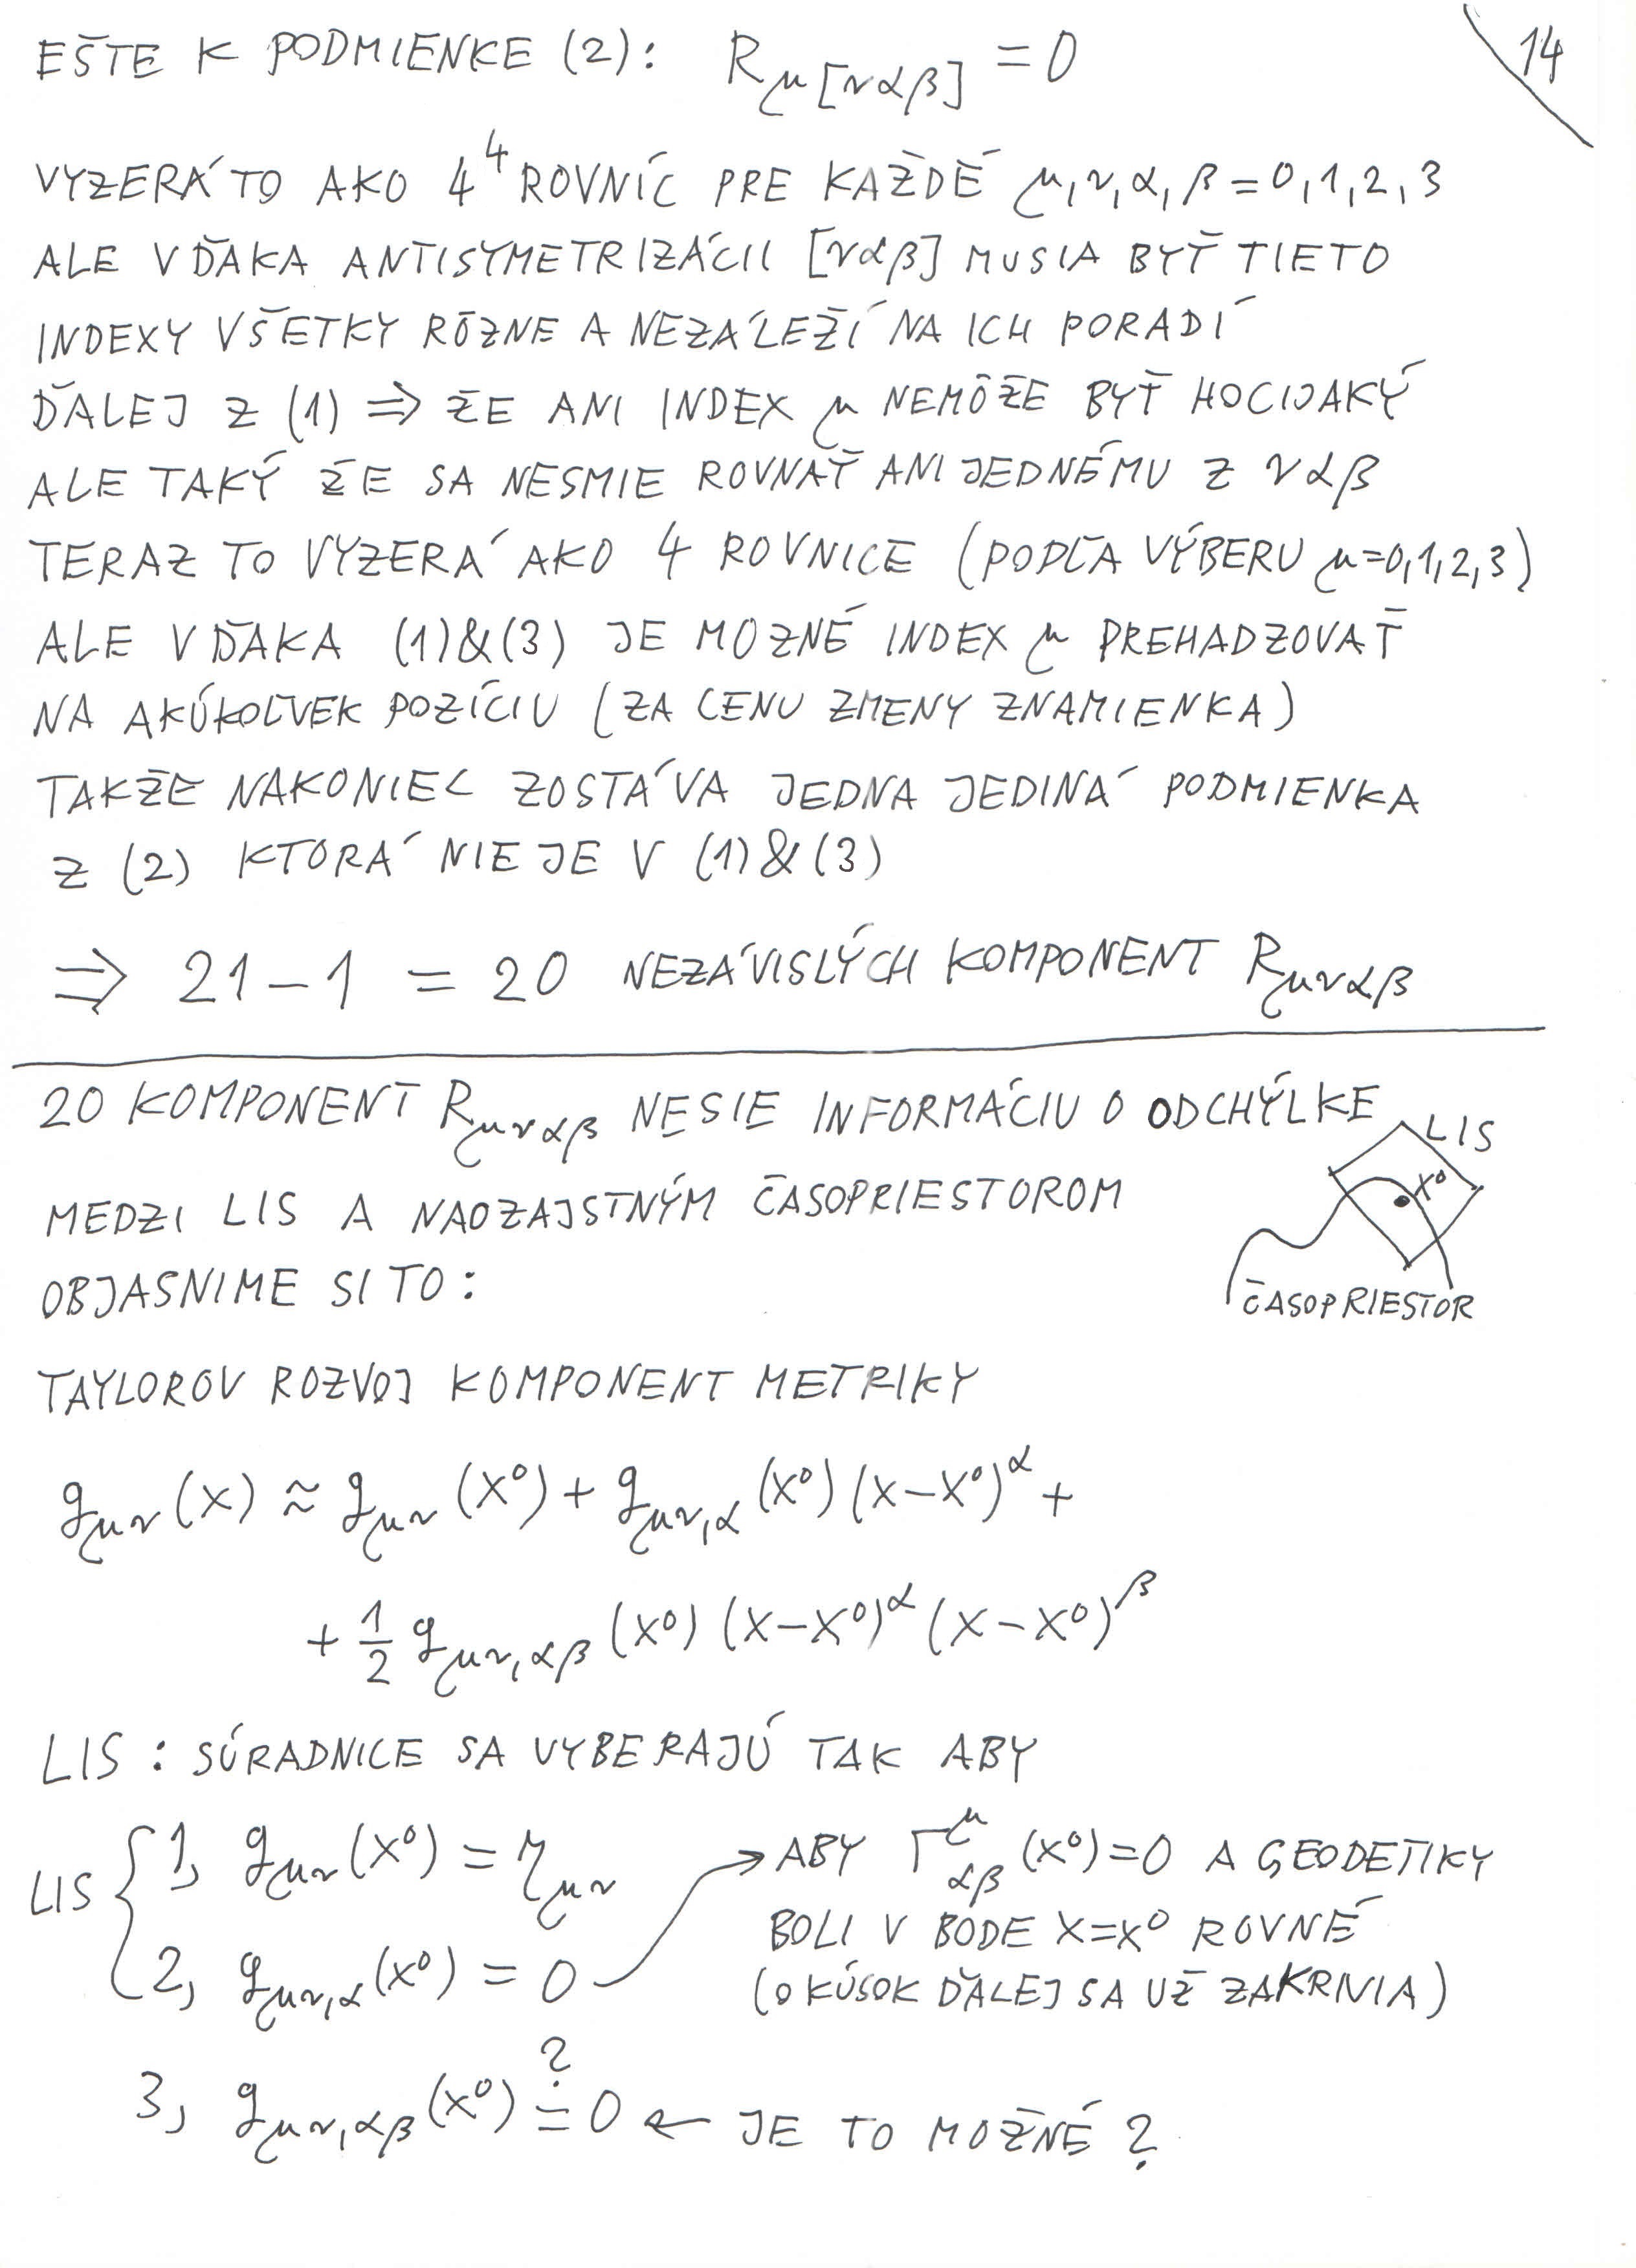 EŠTE K PODMIENKE (2): R_{μ[ναβ]} = 0
14
VYZERÁ TO AKO 4^4 ROVNÍC PRE KAŽDÉ μ,ν,α,β = 0,1,2,3
ALE VĎAKA ANTISYMETRIZÁCII [ναβ] MUSIA BYŤ TIETO
INDEXY VŠETKY RÔZNE A NEZÁLEŽÍ NA ICH PORADÍ
ĎALEJ Z (1) ⇒ ŽE ANI INDEX μ NEMÔŽE BYŤ HOCIJAKÝ
ALE TAKÝ ŽE SA NESMIE ROVNAŤ ANI JEDNÉMU Z ναβ
TERAZ TO VYZERÁ AKO 4 ROVNICE (PODĽA VÝBERU μ=0,1,2,3)
ALE VĎAKA (1)&(3) JE MOZNÉ INDEX μ PREHADZOVAŤ
NA AKÚKOĽVEK POZÍCIU (ZA CENU ZMENY ZNAMIENKA)
TAKŽE NAKONIEC ZOSTÁVA JEDNA JEDINÁ PODMIENKA
Z (2) KTORÁ NIE JE V (1)&(3)
⇒ 21 - 1 = 20 NEZÁVISLÝCH KOMPONENT R_{μναβ}
20 KOMPONENT R_{μναβ} NESIE INFORMÁCIU O ODCHÝLKE
MEDZI LIS A NAOZAJSTNÝM ČASOPRIESTOROM
LIS
x⁰
ČASOPRIESTOR
OBJASNIME SI TO:
TAYLOROV ROZVOJ KOMPONENT METRIKY
g_{μν}(x) ≈ g_{μν}(x⁰) + g_{μν,α}(x⁰)(x-x⁰)^α +
+ 1/2 g_{μν,αβ}(x⁰)(x-x⁰)^α(x-x⁰)^β
LIS : SÚRADNICE SA VYBERAJÚ TAK ABY
LIS { 1, g_{μν}(x⁰) = η_{μν}
2, g_{μν,α}(x⁰) = 0
→ ABY Γ^μ_{αβ}(x⁰)=0 A GEODETIKY
BOLI V BODE X=X⁰ ROVNÉ
(O KÚSOK ĎALEJ SA UŽ ZAKRIVIA)
3, g_{μν,αβ}(x⁰) ≟ 0 ← JE TO MOŽNÉ ?